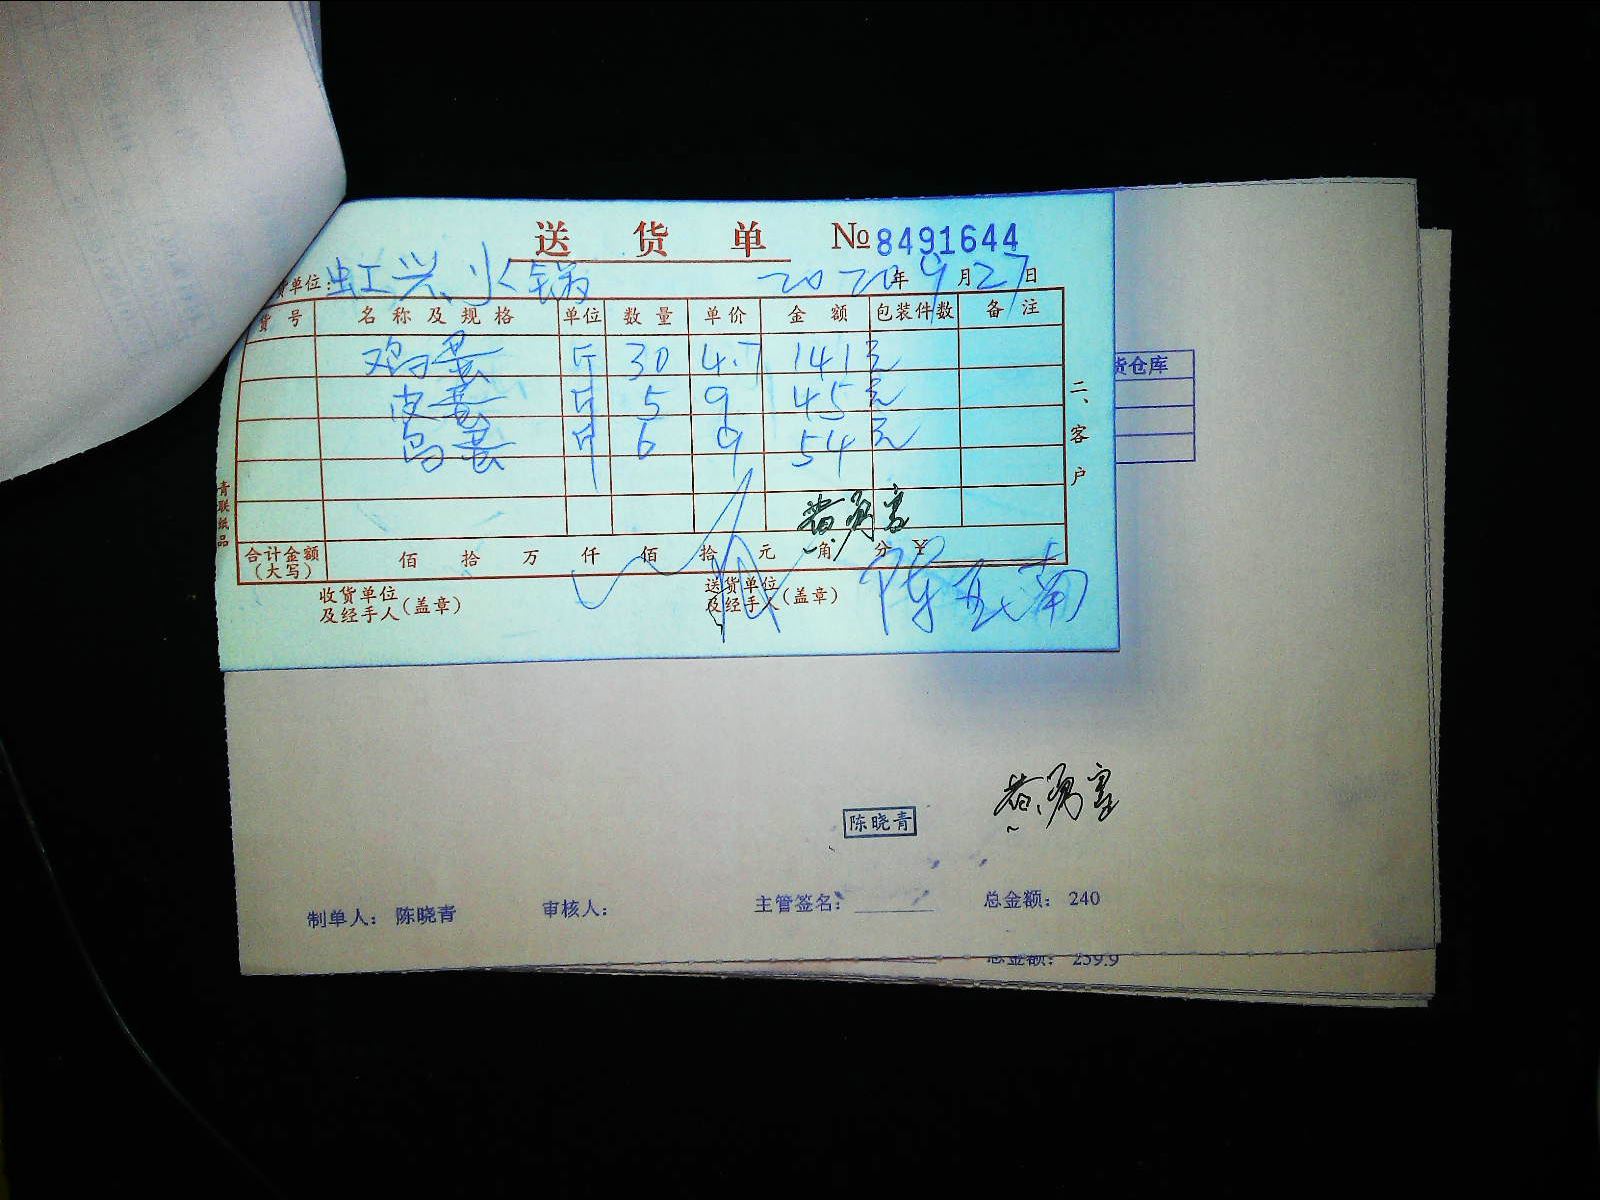 送货单 №8491644
货单位：虹兴火锅 2020年9月27日
货号 名称及规格 单位 数量 单价 金额 包装件数 备注
鸡蛋 斤 30 4.7 141元
皮蛋 斤 5 9 45元
斤 6 9 54元
二、客户
青联纸品
合计金额（大写） 佰 拾 万 仟 佰 拾 元 角 分 ¥
收货单位及经手人（盖章） 送货单位及经手人（盖章）
货仓库
陈晓青
制单人： 陈晓青 审核人： 主管签名： 总金额： 240
总金额： 259.9